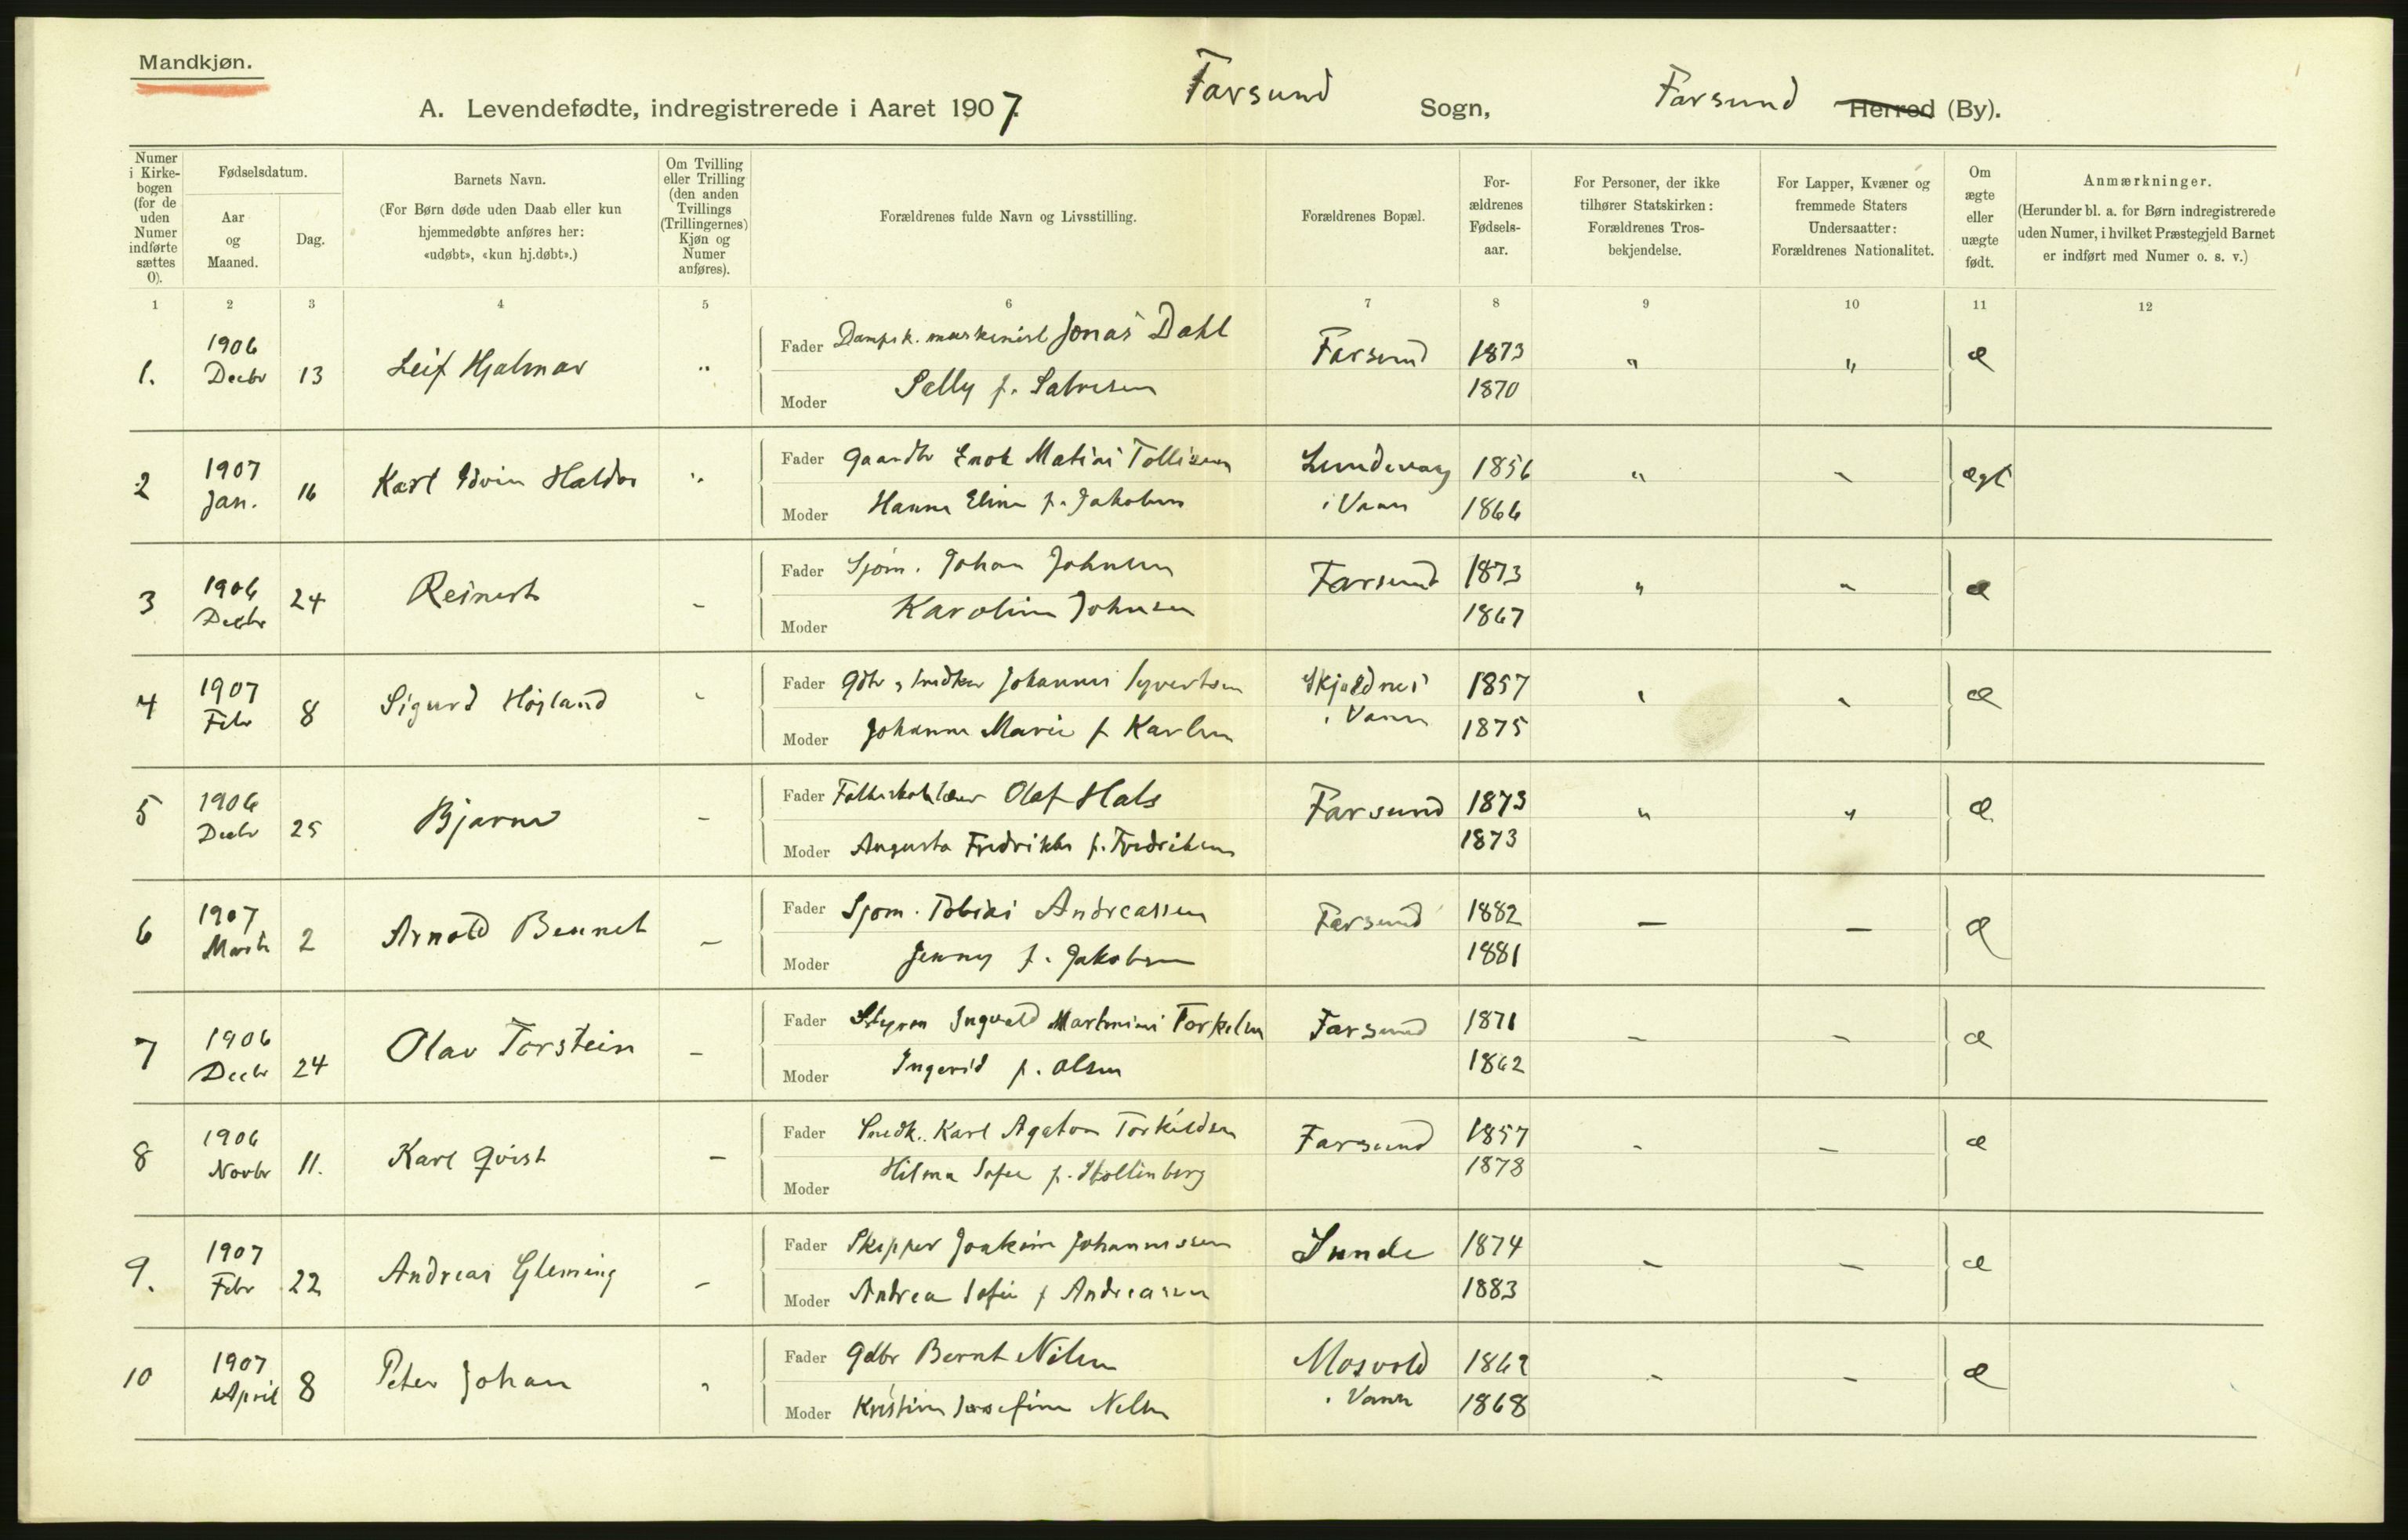 Mandkjøn.
A. Levendefødte, indregistrerede i Aaret 1907. Farsund Sogn, Farsund Herred (By).
Numer i Kirkebogen (for de uden Numer indførte sættes 0).
Fødselsdatum.
Aar og Maaned.
Dag.
Barnets Navn.
(For Børn døde uden Daab eller kun hjemmedøbte anføres her: «udøbt», «kun hj.døbt».)
Om Tvilling eller Trilling (den anden Tvillings (Trillingernes) Kjøn og Numer anføres).
Forældrenes fulde Navn og Livsstilling.
Forældrenes Bopæl.
Forældrenes Fødselsaar.
For Personer, der ikke tilhører Statskirken: Forældrenes Trosbekjendelse.
For Lapper, Kvæner og fremmede Staters Undersaatter: Forældrenes Nationalitet.
Om ægte eller uægte født.
Anmærkninger.
(Herunder bl. a. for Børn indregistrerede uden Numer, i hvilket Præstegjeld Barnet er indført med Numer o. s. v.)
1 2 3 4 5 6 7 8 9 10 11 12
1. 1906 Decbr 13 Leif Hjalmar " Fader Dampsk. maskinist Jonas Dahl Farsund 1873 " " æ
Moder Selly f. Salvesen 1870
2 1907 Jan. 16 Karl Edvin Haldor " Fader Gaardbr Enok Matias Tollisen Lundevaag 1856 " - ægt
Moder Hanna Eline f. Jakobsen i Vans 1866
3 1906 Decbr 24 Reinert - Fader Sjøm. Johan Johnsen Farsund 1873 " - æ
Moder Karoline Johnsen 1867
4 1907 Febr 8 Sigurd Højland - Fader Gdbr & snedker Johannes Syvertsen Skjoldnes 1857 æ
Moder Johanne Marie f Karlsen i Vanse 1875
5 1906 Decbr 25 Bjarne - Fader Folkeskolelærer Olaf Hals Farsund 1873 " " æ
Moder Augusta Fredrikke f. Fredriksen 1873
6 1907 Marts 2 Arnold Bennet - Fader Sjøm. Tobias Andreassen Farsund 1882 - - æ
Moder Jenny f. Jakobsen 1881
7 1906 Decbr 24 Olav Torstein - Fader Styrm Ingvald Martinius Torkelsen Farsund 1871 - - æ
Moder Ingerid f. Olsen 1862
8 1906 Novbr 11. Karl Qvist - Fader Snedk. Karl Agaton Torkildsen Farsund 1857 - - æ
Moder Hilma Sofie f. Stoltenberg 1878
9. 1907 Febr 22 Andreas Gleming - Fader Skipper Joakim Johannessen Sunde 1874 - - æ
Moder Andrea Sofie f Andreasen 1883
10 1907 April 8 Peter Johan " Fader Gdbr Bernt Nilsen Mosvold 1862 - - æ
Moder Kristine Josefine Nelsen i Vanse 1868